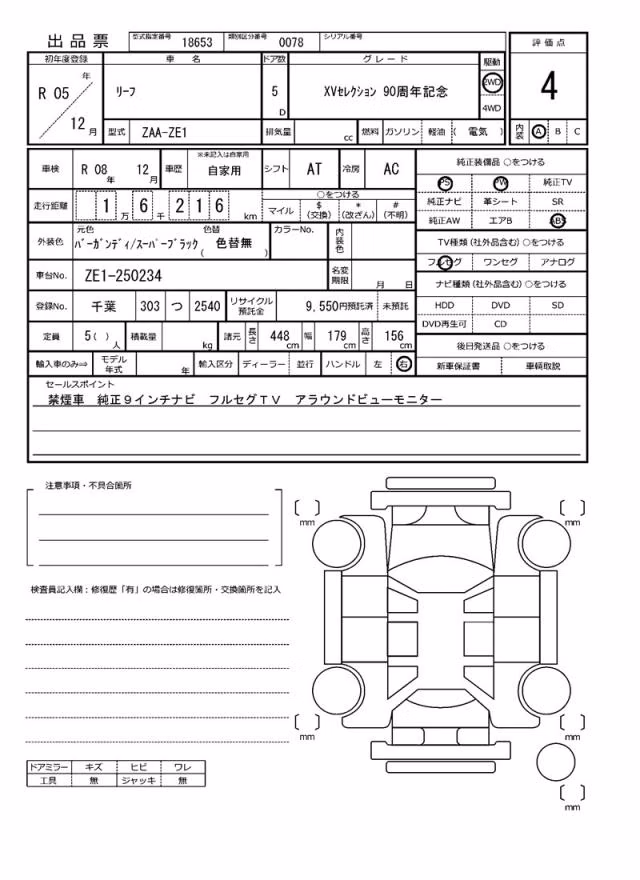 出品票 型式指定番号 18653 類別区分番号 0078 シリアル番号
評価点
4
内装 A B C
初年度登録 車名 ドア数 グレード 駆動
R 05 年 12 月 リーフ 5 D XVセレクション 90周年記念 2WD 4WD
型式 ZAA-ZE1 排気量 cc 燃料 ガソリン 軽油 ( 電気 )
車検 R 08 年 12 月 車歴 ※未記入は自家用 自家用 シフト AT 冷房 AC
走行距離 1 万 6 千 2 1 6 km
○をつける
マイル $ (交換) * (改ざん) # (不明)
外装色 元色 色替
バーガンディ/スーパーブラック ( 色替無 )
カラーNo. 内装色
車台No. ZE1-250234 名変期限 月 日
登録No. 千葉 303 つ 2540 リサイクル預託金 9,550円預託済 未預託
定員 5 ( ) 人 積載量 kg 諸元 長さ 448 cm 幅 179 cm 高さ 156 cm
輸入車のみ⇒ モデル年式 年 輸入区分 ディーラー 並行 ハンドル 左 右
純正装備品 ○をつける
PS PW 純正TV
純正ナビ 革シート SR
純正AW エアB ABS
TV種類 (社外品含む) ○をつける
フルセグ ワンセグ アナログ
ナビ種類 (社外品含む) ○をつける
HDD DVD SD
DVD再生可 CD
後日発送品 ○をつける
新車保証書 車輌取説
セールスポイント
禁煙車 純正9インチナビ フルセグTV アラウンドビューモニター
注意事項・不具合箇所
検査員記入欄：修復歴「有」の場合は修復箇所・交換箇所を記入
ドアミラー キズ ヒビ ワレ
工具 無 ジャッキ 無
mm
mm
mm
mm
mm